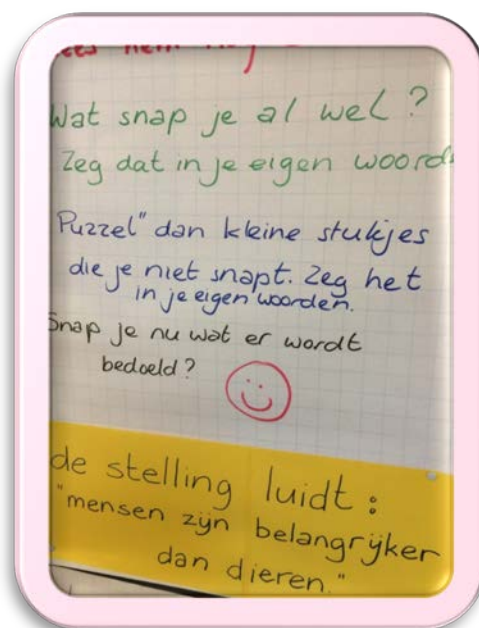 Wat snap je al wel?
Zeg dat in je eigen
Puzzel" dan kleine stukjes
die je niet snapt. Zeg het
in je eigen woorden.
Snap je nu wat er wordt
bedoeld?
de stelling luidt:
"mensen zijn belangrijker
dan dieren."